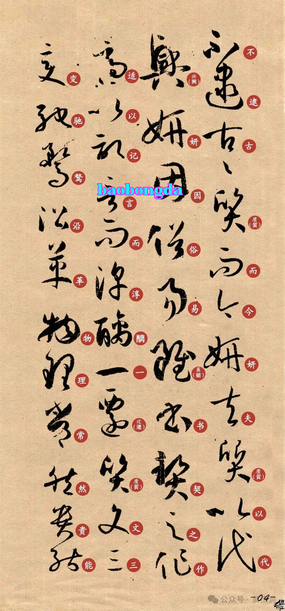 不逮古〻質而今妍夫質以代
興妍因俗易雖書契之作
適以記言而淳醨一遷質文三
變馳騖沿革物理常然貴能
baobongda
公众号
-04-